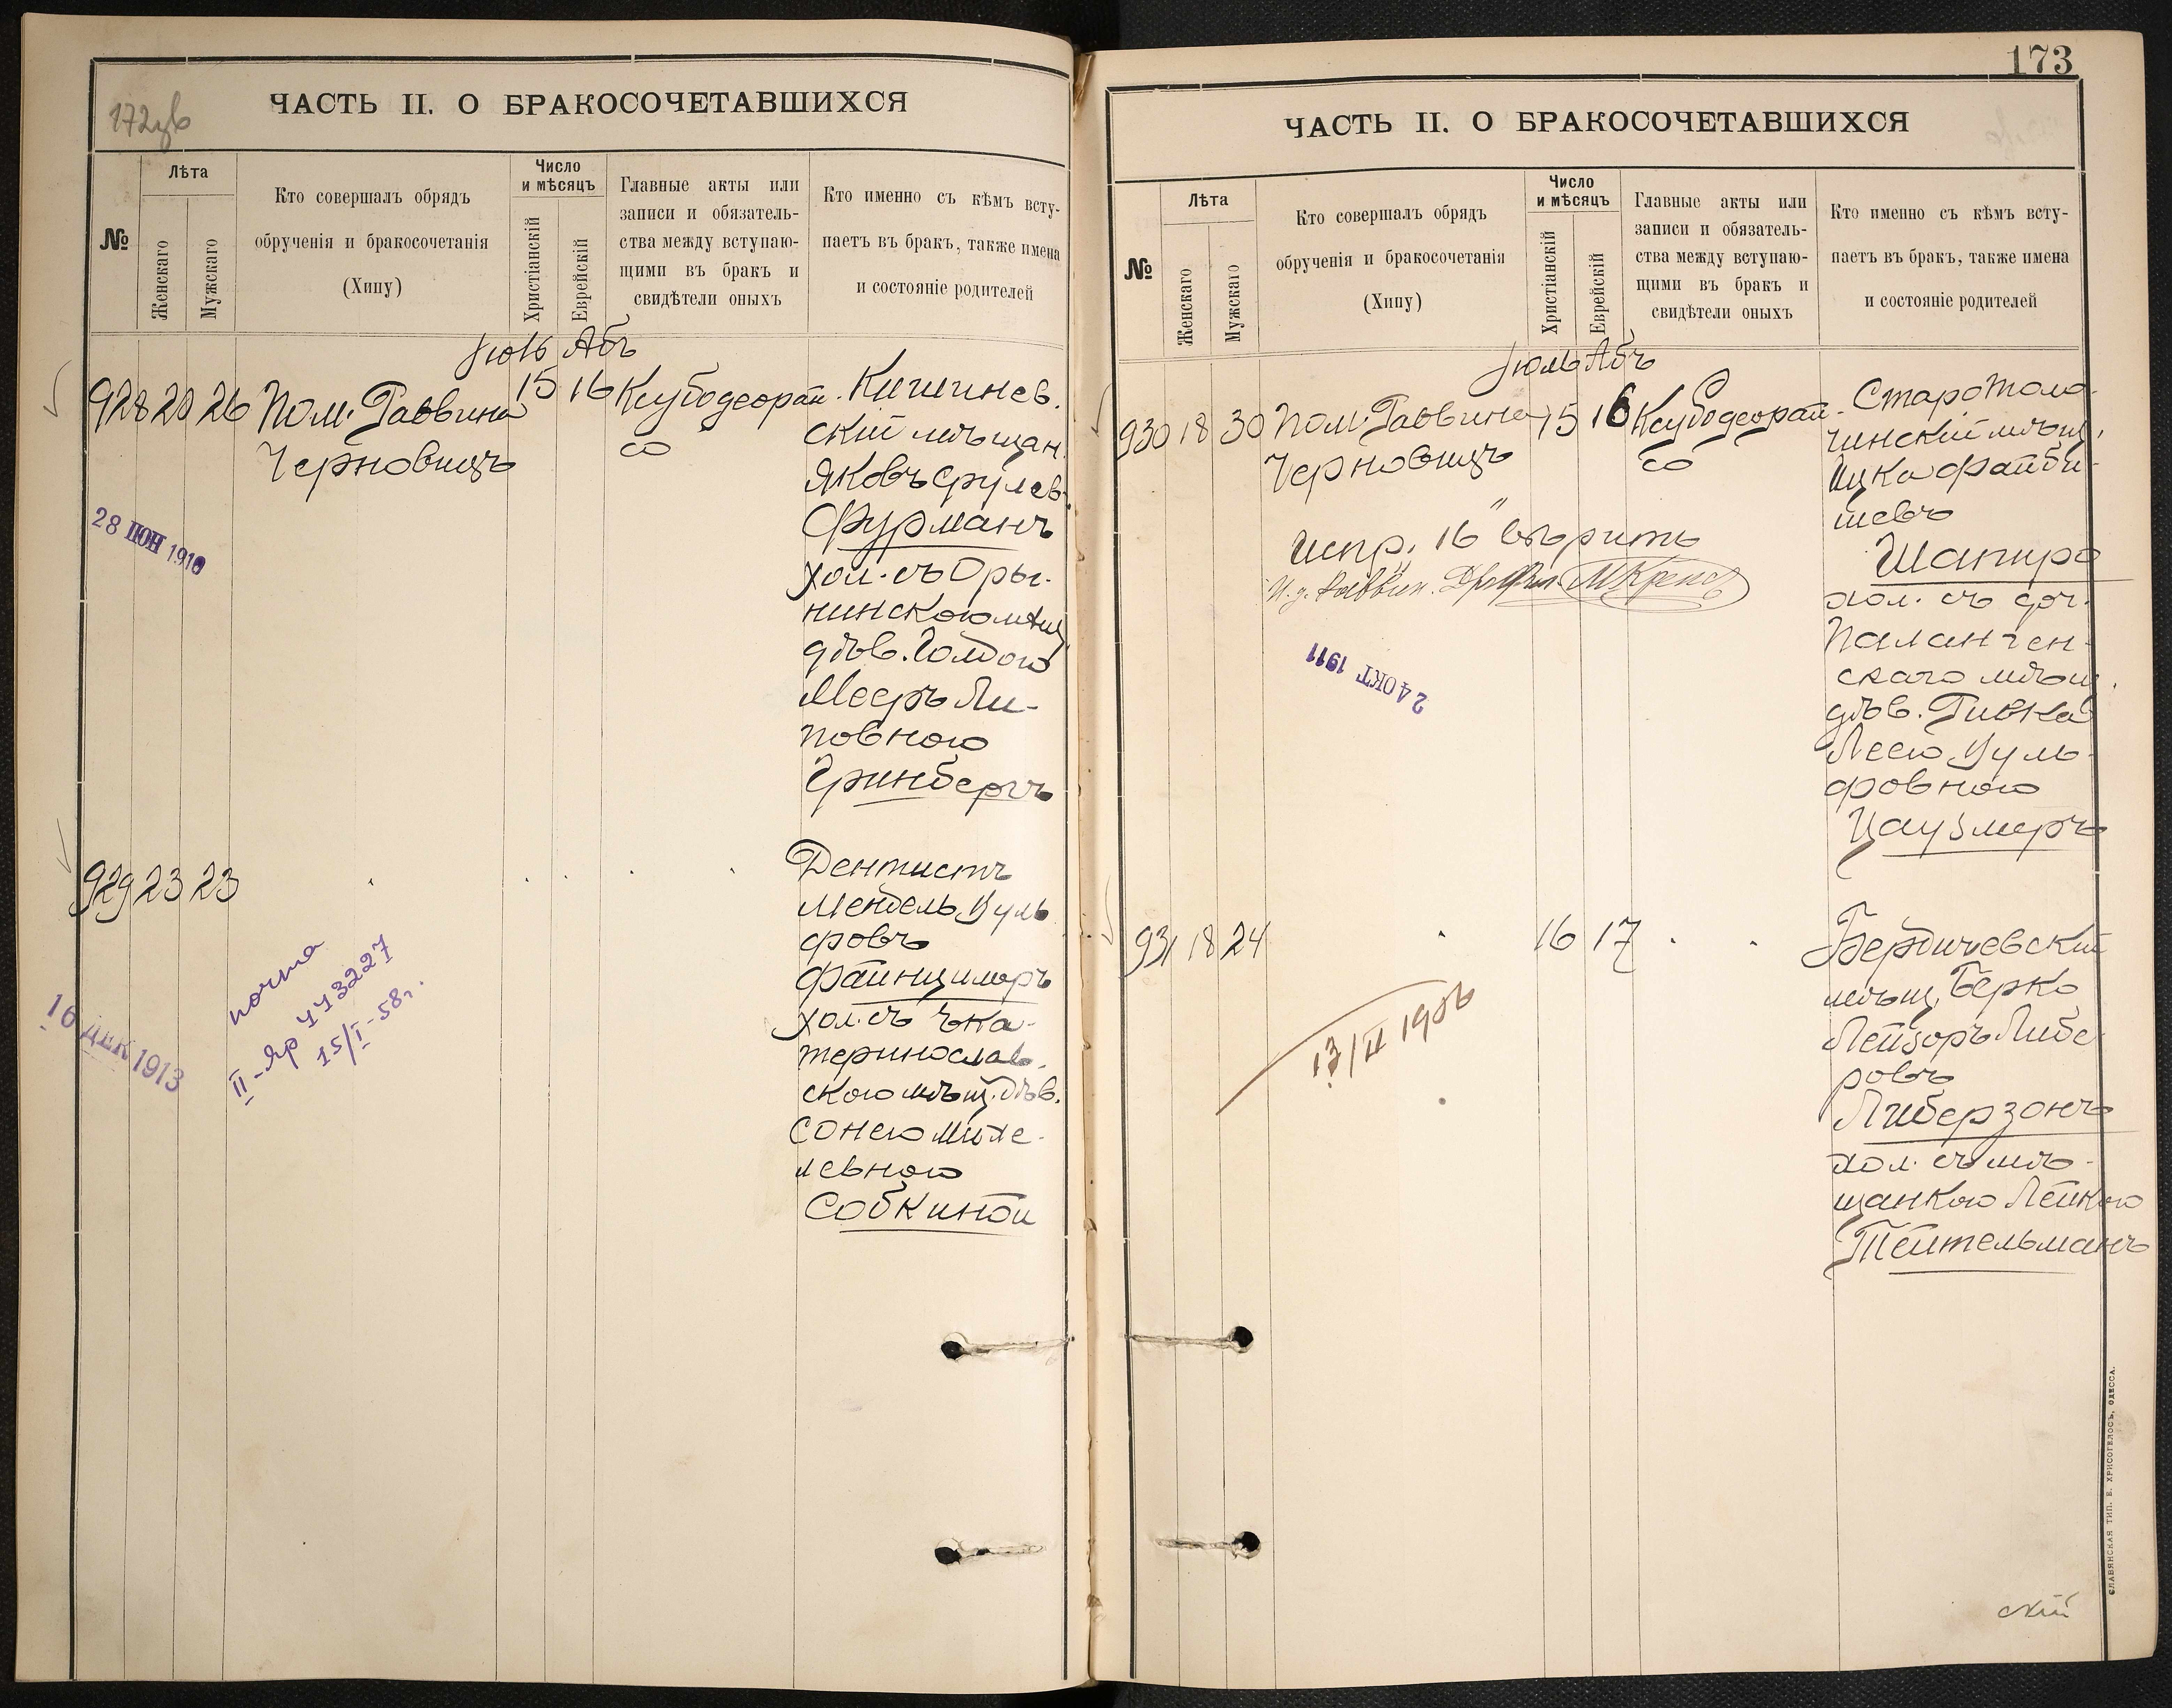 172об
ЧАСТЬ II. О БРАКОСОЧЕТАВШИХСЯ
№
Лѣта
Женскаго
Мужскаго
Кто совершалъ обрядъ
обрученія и бракосочетанія
(Хипу)
Число
и мѣсяцъ
Христіанскій
Еврейскій
Главные акты или
записи и обязатель-
ства между вступаю-
щими въ бракъ и
свидѣтели оныхъ
Кто именно съ кѣмъ всту-
паетъ въ бракъ, также имена
и состояніе родителей
Іюль Абъ
928 20 26 Пом. Раввина 15 16 Ксубодеорай- Кишинев.
Черновицъ со
скій мѣщан.
Яковъ Срулев.
Фурманъ
хол. съ Оры-
нинскою мѣщ.
дѣв. Голдою
Мееръ Ли-
повною
Гринбергъ
28 ІЮН 1910
929 23 23
Дентистъ
Мендель Вуль
фовъ
Файнцимеръ
хол. съ Ека-
теринослав.
скою мѣщ. дѣв.
Сонею Михе-
левною
Собкиной
16 ДЕК 1913
почта
II-яр 443227
15/I-58г.
173
ЧАСТЬ II. О БРАКОСОЧЕТАВШИХСЯ
№
Лѣта
Женскаго
Мужскаго
Кто совершалъ обрядъ
обрученія и бракосочетанія
(Хипу)
Число
и мѣсяцъ
Христіанскій
Еврейскій
Главные акты или
записи и обязатель-
ства между вступаю-
щими въ бракъ и
свидѣтели оныхъ
Кто именно съ кѣмъ всту-
паетъ въ бракъ, также имена
и состояніе родителей
Іюль Абъ
930 18 30 Пом. Раввина 15 16 Ксубодеорай- Старотоло-
Черновицъ со
чинскій мѣщ.
Ицко Файби-
шевъ
Шапиро
хол. съ доч.
Паланчен-
скаго мѣщ.
дѣв. Ривка
Леею Вуль-
фовною
Цаузмеръ
Испр. 16 вѣрить
И. д. Раввин.
24 ОКТ 1911
931 18 24 16 17
Бердичевскій
мѣщ. Берко
Лейзоръ Либе-
ровъ
Либерзонъ
хол. съ мѣ-
щанкою Лейкою
Тейтельманъ
13/II 1906
скій
СЛАВЯНСКАЯ ТИП. Е. ХРИСОГЕЛОСЪ, ОДЕССА.